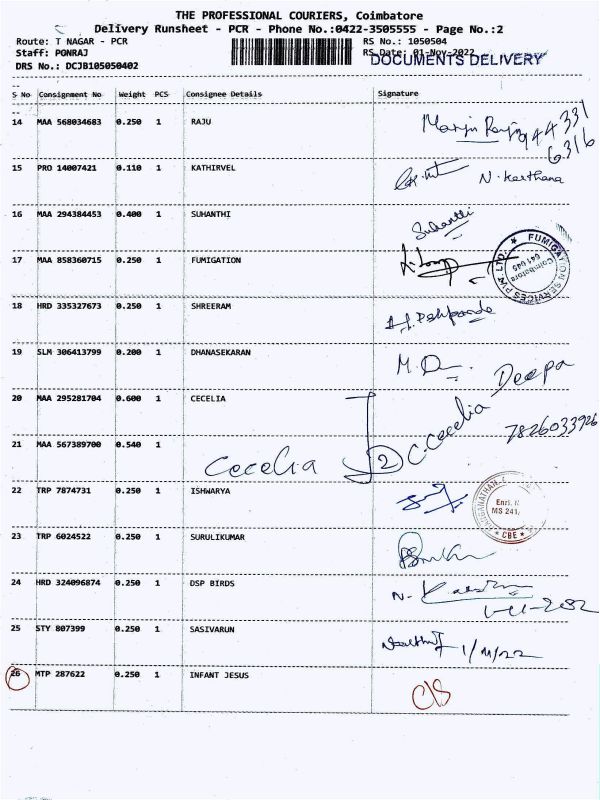 THE PROFESSIONAL COURIERS, Coimbatore
Delivery Runsheet - PCR - Phone No.:0422-3505555 - Page No.:2
Route: T NAGAR - PCR
RS No.: 1050504
Staff: PONRAJ
RS Date: 01-Nov-2022
DOCUMENTS DELIVERY
DRS No.: DCJB105050402
S No Consignment No Weight PCS Consignee Details Signature
14 MAA 568034683 0.250 1 RAJU
944331
6316
15 PRO 14007421 0.110 1 KATHIRVEL N. Keerthana
16 MAA 294384453 0.400 1 SUHANTHI Suhanthi
17 MAA 858360715 0.250 1 FUMIGATION
FUMIGATION SERVICES PVT. LTD.
Coimbatore
641 045
18 HRD 335327673 0.250 1 SHREERAM
19 SLM 306413799 0.200 1 DHANASEKARAN M. D Deepa
20 MAA 295281704 0.600 1 CECELIA C. Cecelia
7826033926
21 MAA 567389700 0.540 1 Cecelia 2
22 TRP 7874731 0.250 1 ISHWARYA
Enrl.
MS 241
CBE
23 TRP 6024522 0.250 1 SURULIKUMAR
24 HRD 324096874 0.250 1 DSP BIRDS N.
25 STY 807399 0.250 1 SASIVARUN 1/11/22
26 MTP 287622 0.250 1 INFANT JESUS C/S